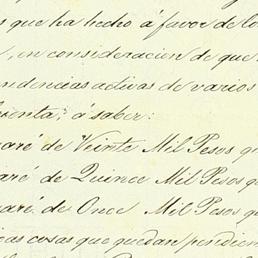 s que ha hecho á favor de lo
, en consideracion de que
ndencias activas de varios
senta; á saber:
garé de Veinte Mil Pesos q
aré de Quince Mil Pesos q
garé de Once Mil Pesos q
icas cosas que quedan pendien